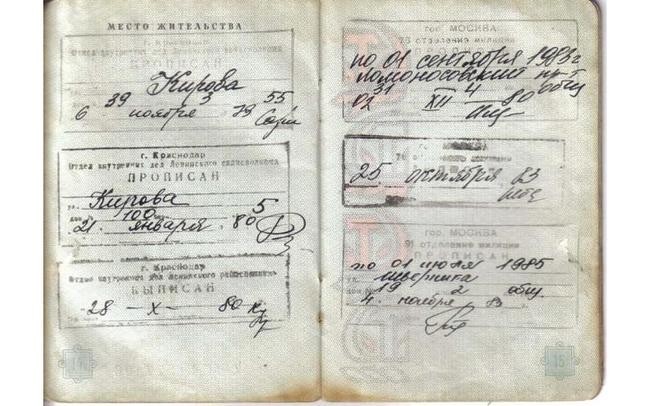 МЕСТО ЖИТЕЛЬСТВА
г. Краснодар
ПРОПИСАН
Кирова
39 3 55
6 ноября 79
г. Краснодар
Отдел внутренних дел Ленинского райисполкома
ПРОПИСАН
ул. Кирова
дом № 100 5
21. января. 80
г. Краснодар
Отдел внутренних дел Ленинского райисполкома
ВЫПИСАН
-28 - X - 80
14
гор. МОСКВА
76 отделение милиции
ПРОПИСАН
по 01 сентября 1983г
Ломоносовский пр-т
31 4 общ
02 XII 80
25 октября 83
гор. МОСКВА
91 отделение милиции
по 01 июля 1985
дом № 19 2 общ.
4. ноября 83
15